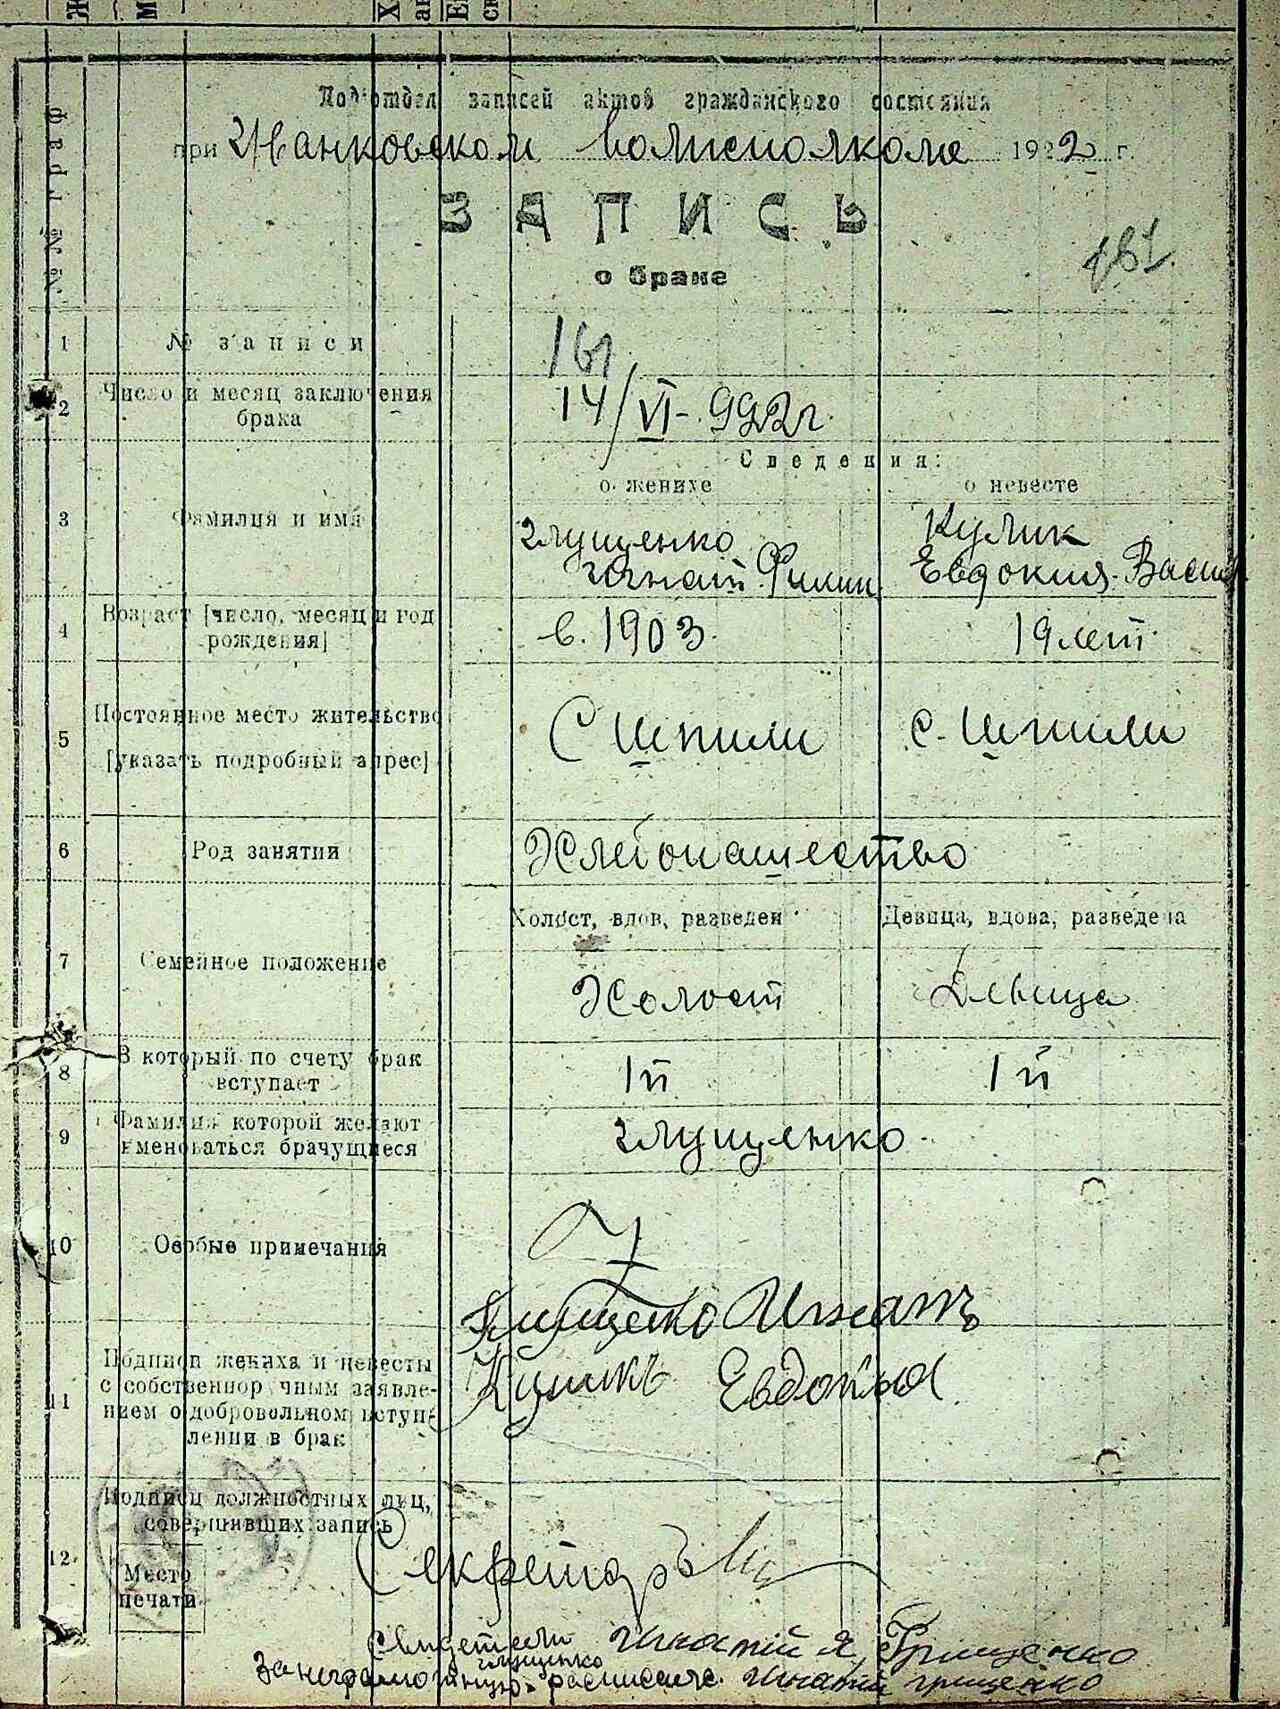 №№ граф
Подотдел записей актов гражданского состояния
при Иванковском волисполкоме 1922 г.
ЗАПИСЬ
о браке
181.
1 № записи 161
2 Число и месяц заключения
брака 14/VI-922г
Сведения:
о женихе о невесте
3 Фамилия и имя Глущенко Кулик
Игнат Филип Евдокия Васил
4 Возраст [число, месяц и год
рождения] в. 1903. 19 лет.
5 Постоянное место жительство
[указать подробный адрес] С Шпили с. Шпили
6 Род занятии Хлебопашество
Холост, вдов, разведен Девица, вдова, разведена
7 Семейное положение Холост Девица
8 В который по счету брак
вступает 1й 1й
9 Фамилия которой желают
именоваться брачущиеся Глущенко.
10 Особые примечания
Глущенко Игнатъ
11 Подписи жениха и невесты
с собственноручным заявле-
нием о добровольном вступ-
лении в брак Куликъ Евдокия
12 Подписи должностных лиц,
совершивших запись
Место
печати
Секретарь
Свидетели Игнатій Я. Грищенко
Глущенко
За неграмотную расписался. Игнатій Грищенко